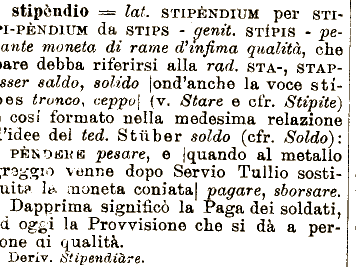 stipèndio = lat. STIPÈNDIUM per STI-
PI-PÈNDIUM da STIPS - genit. STÍPIS - pe-
sante moneta di rame d'infima qualità, che
pare debba riferirsi alla rad. STA-, STAP-
esser saldo, solido |ond'anche la voce stí-
pes tronco, ceppo| (v. Stare e cfr. Stipite)
e così formato nella medesima relazione
d'idee del ted. Stüber soldo (cfr. Soldo):
PÈNDERE pesare, e |quando al metallo
greggio venne dopo Servio Tullio sosti-
tuita la moneta coniata| pagare, sborsare.
Dapprima significò la Paga dei soldati,
ed oggi la Provvisione che si dà a per-
sone di qualità.
Deriv. Stipendiàre.